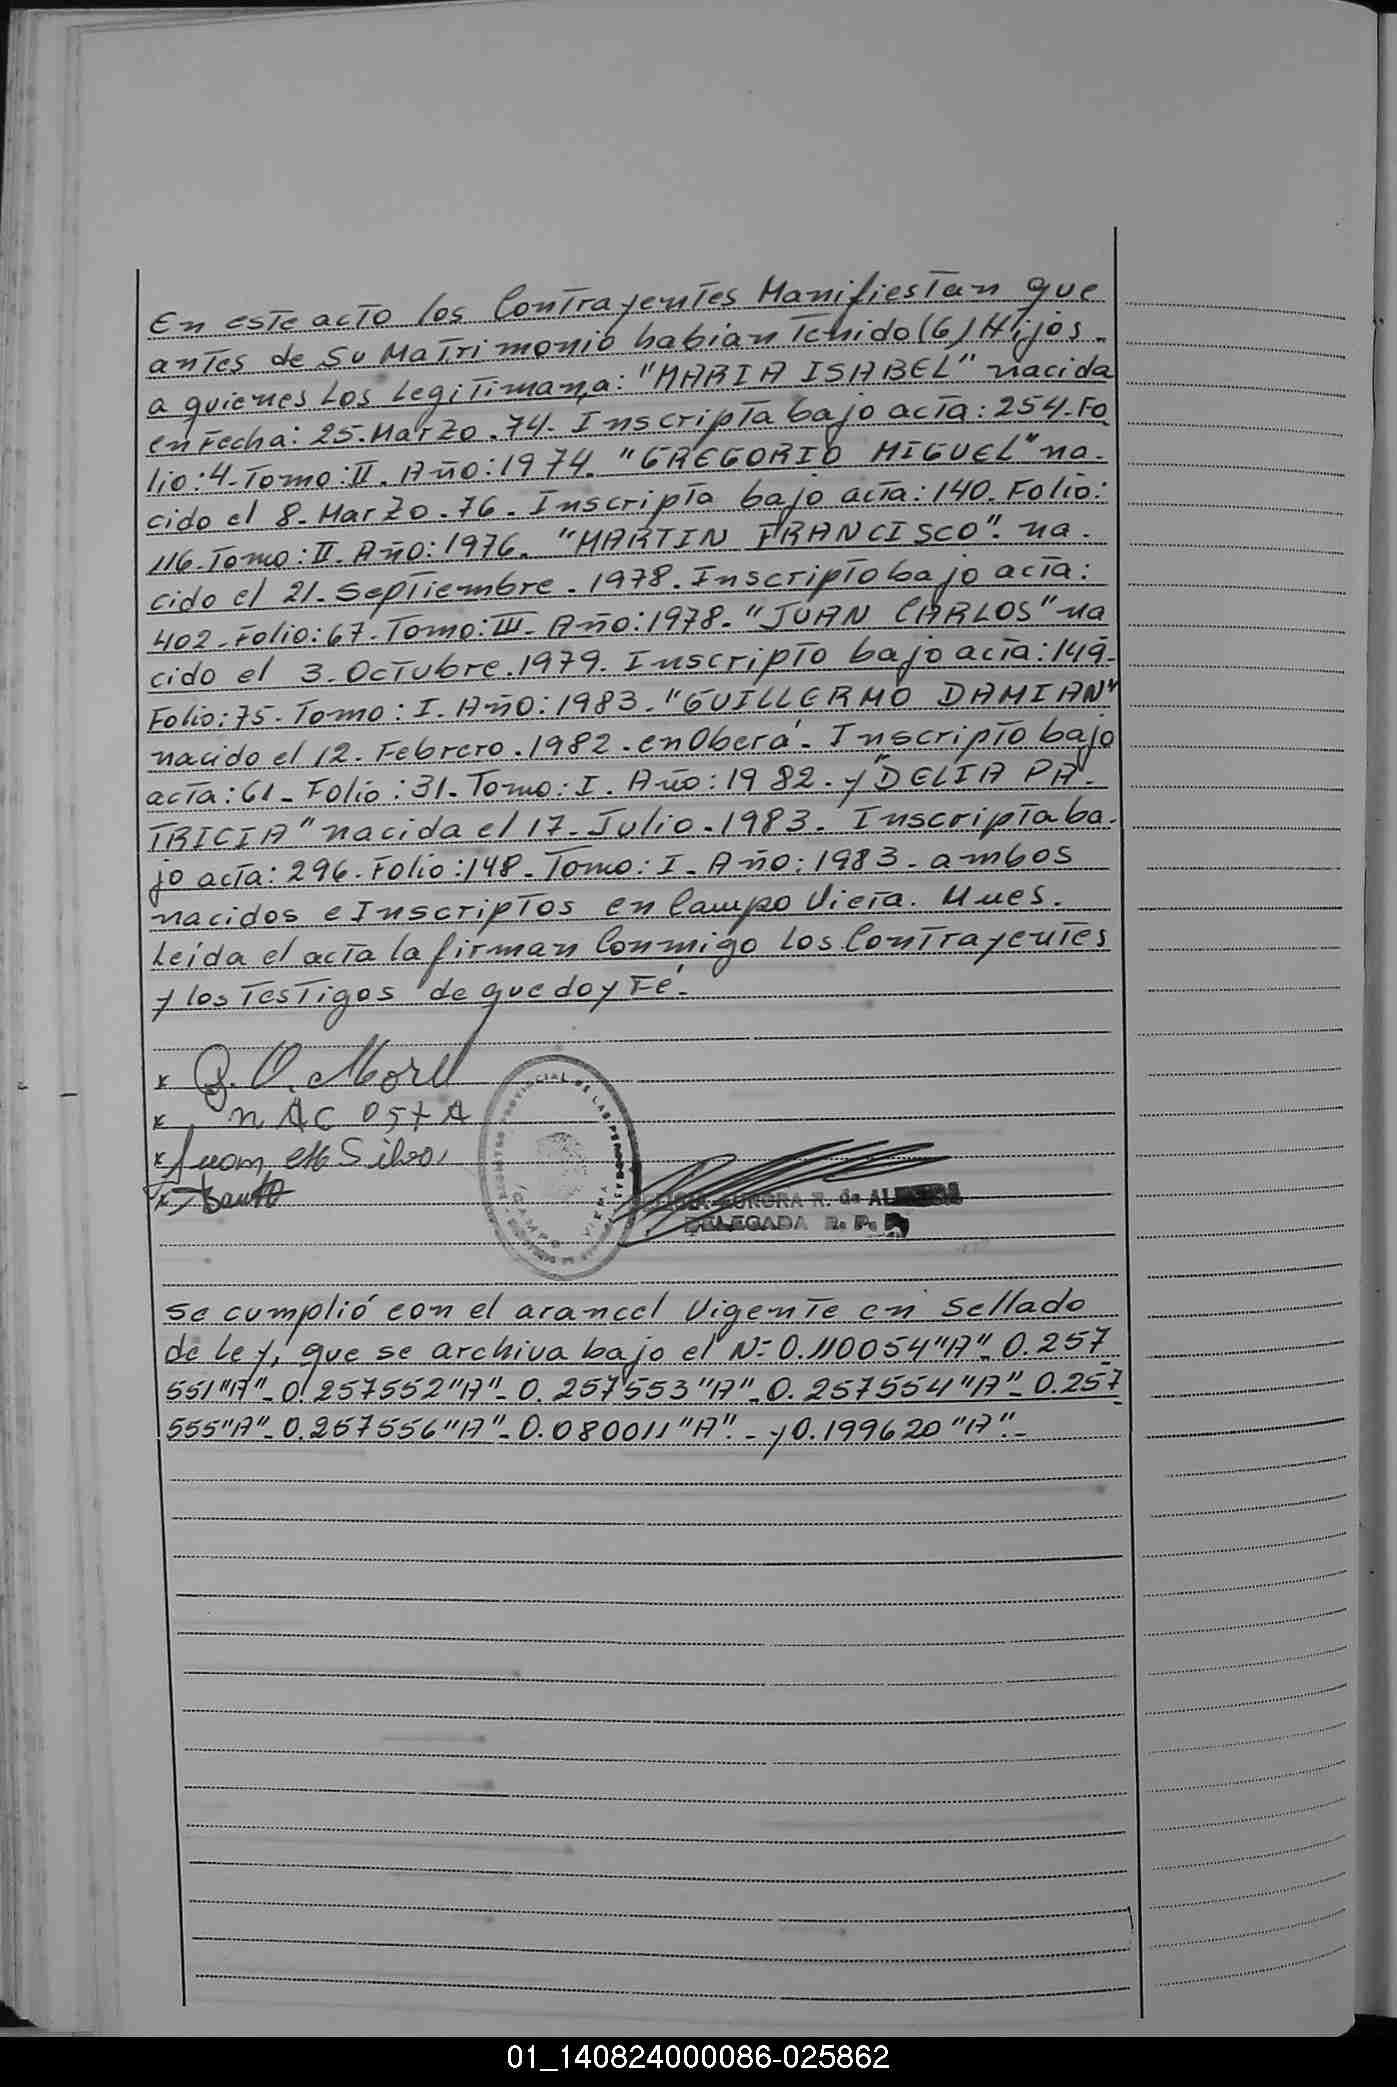 En este acto los Contrayentes Manifiestan que
antes de su Matrimonio habian Tenido (6) Hijos.
a quienes los Legitiman, a: "MARIA ISABEL" nacida
en Fecha: 25. Marzo. 74. Inscripta bajo acta: 254. Fo
lio: 4. Tomo: II. Año: 1974. "GREGORIO MIGUEL" na.
cido el 8. Marzo. 76. Inscripto bajo acta: 140. Folio:
116. Tomo: II. Año: 1976. "MARTIN FRANCISCO". na.
cido el 21. Septiembre. 1978. Inscripto bajo acta:
402. Folio: 67. Tomo: III. Año: 1978. "JUAN CARLOS" na
cido el 3. Octubre. 1979. Inscripto bajo acta: 149.
Folio: 75. Tomo: I. Año: 1983. "GUILLERMO DAMIAN"
nacido el 12. Febrero. 1982. en Oberá. Inscripto bajo
acta: 61. Folio: 31. Tomo: I. Año: 1982. y "DELIA PA-
TRICIA" nacida el 17. Julio. 1983. Inscripta ba.
jo acta: 296. Folio: 148. Tomo: I. Año: 1983. ambos
nacidos e Inscriptos en Campo Viera. Mnes.
Leída el acta la firman Conmigo los Contrayentes
y los Testigos de que doy Fé.
x
x
x Juan Silva
x
AURORA R. de
DELEGADA R. P. P.
Se cumplió con el arancel Vigente en Sellado
de Ley, que se archiva bajo el Nº 0.110054 "A" - 0.257
551 "A" - 0.257552 "A" - 0.257553 "A" - 0.257554 "A" - 0.257
555 "A" - 0.257556 "A" - 0.080011 "A". - y 0.199620 "A". -
01_140824000086-025862